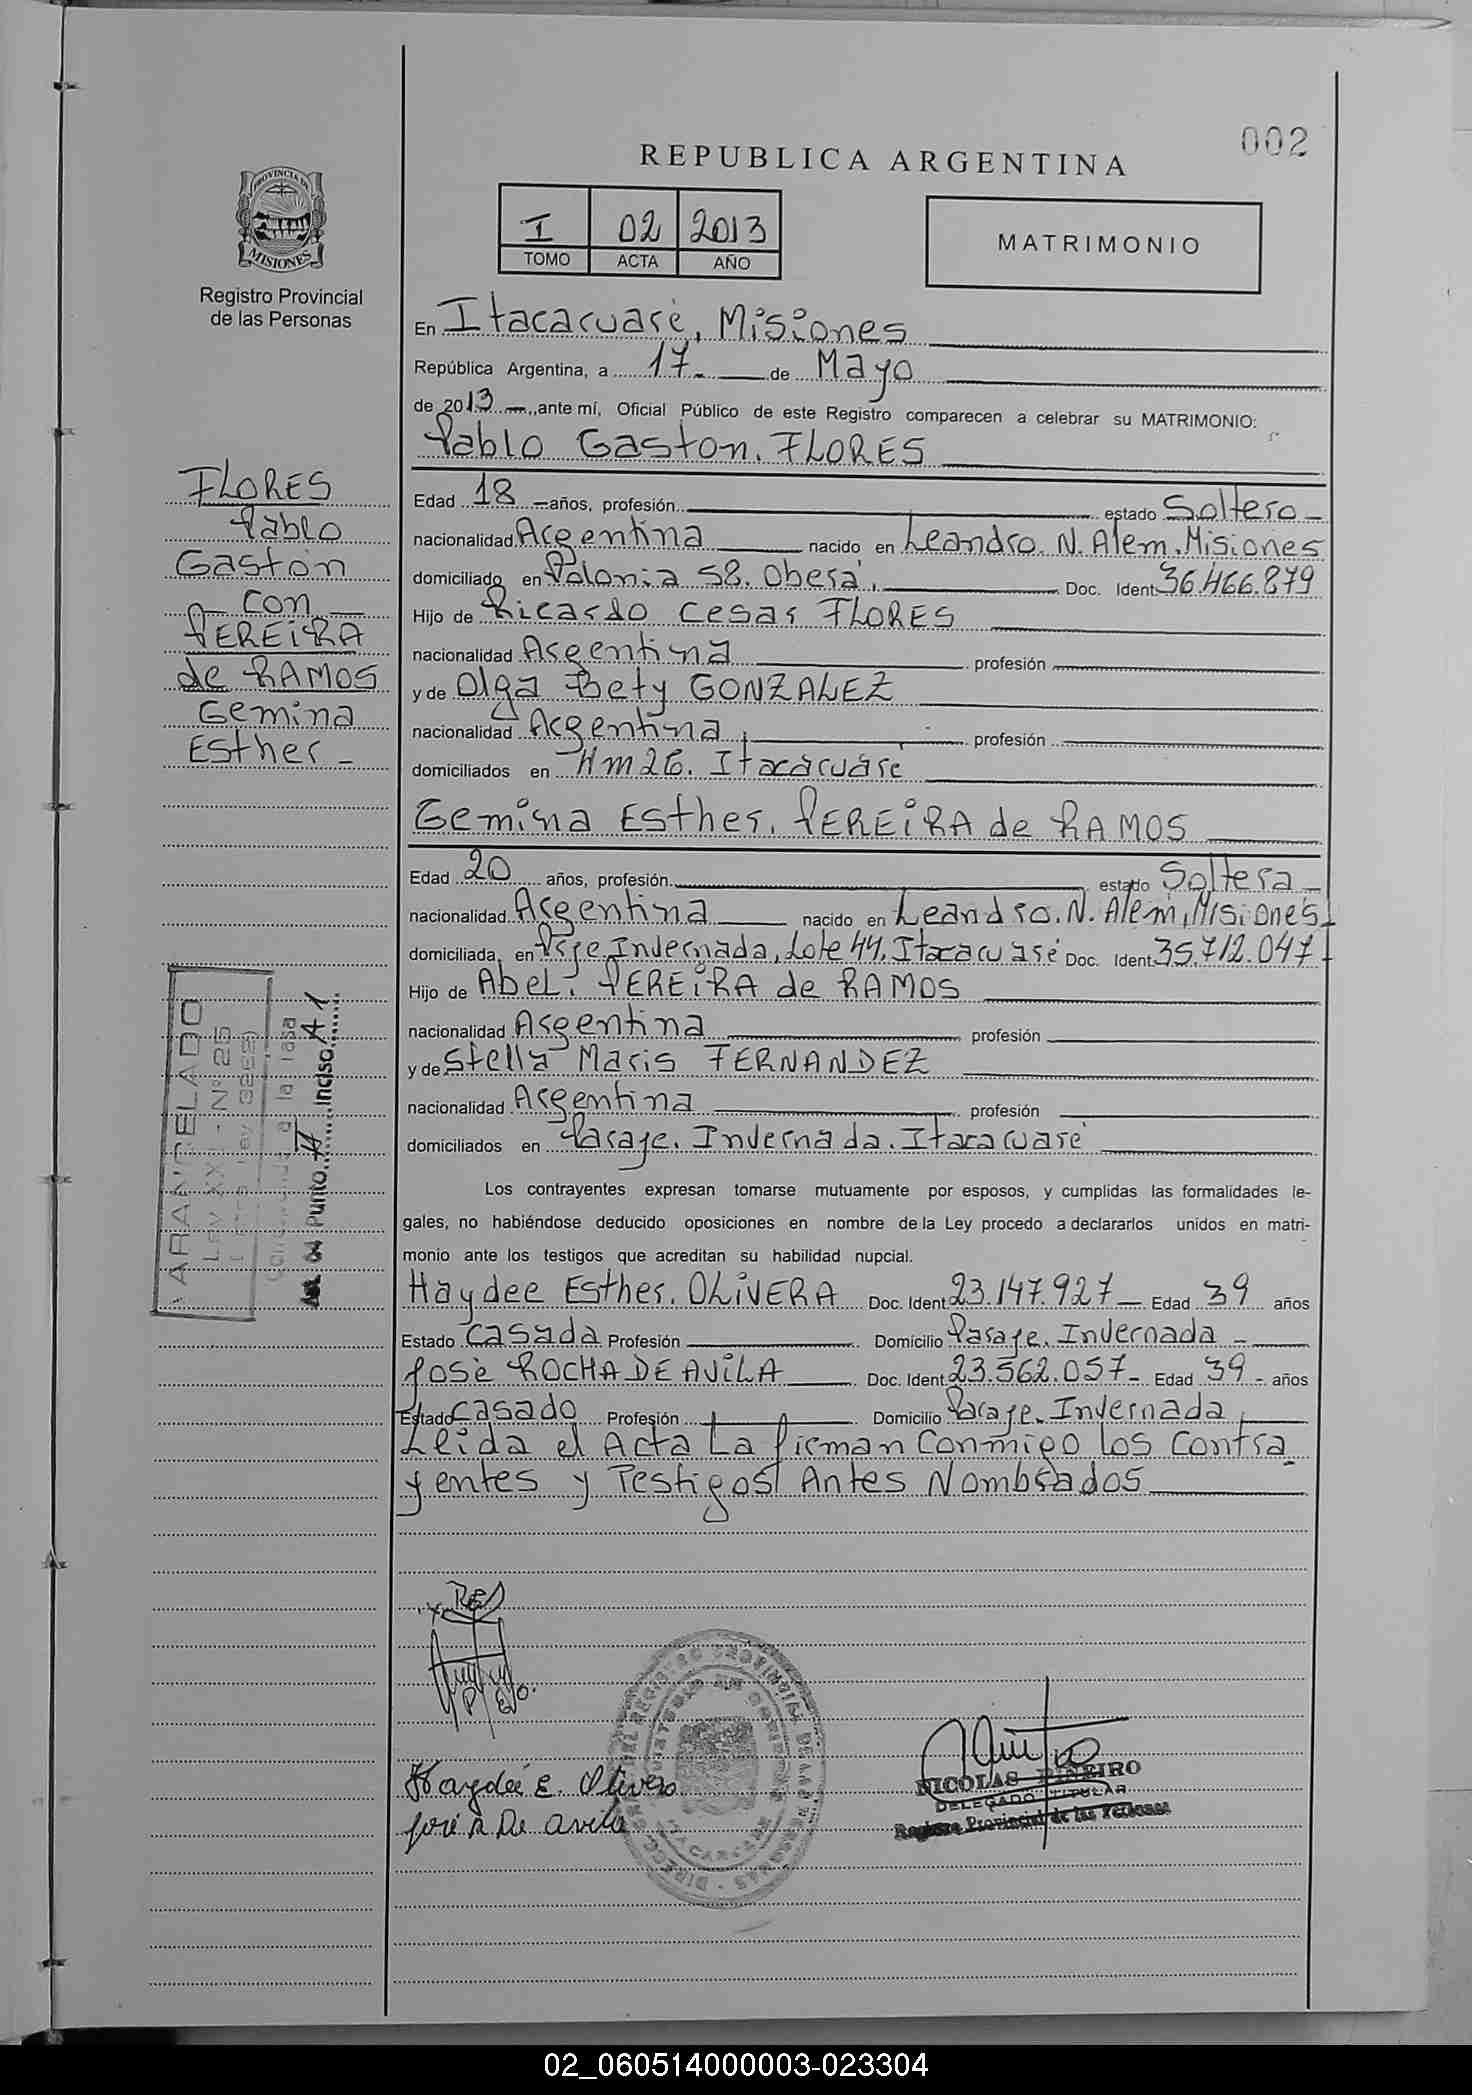 002
REPUBLICA ARGENTINA
PROVINCIA DE
MISIONES
Registro Provincial
de las Personas
I 02 2013
TOMO ACTA AÑO
MATRIMONIO
En Itacacuaré, Misiones
República Argentina, a 17 de Mayo
de 2013, ante mí, Oficial Público de este Registro comparecen a celebrar su MATRIMONIO:
Pablo Gaston. FLORES
FLORES
Pablo
Gastón
con
PEREiRA
de RAMOS
Gemina
Esther
Edad 18 años, profesión estado Soltero
nacionalidad Argentina nacido en Leandro. N. Alem. Misiones
domiciliado en 58. Oberá, Doc. Ident 36.466.879
Hijo de Ricardo Cesar FLORES
nacionalidad Argentina profesión
y de Olga Bety GONZALEZ
nacionalidad Argentina profesión
domiciliados en Km 26. Itacacuare
Gemina Esther. PEREiRA de RAMOS
Edad 20 años, profesión estado Soltera
nacionalidad Argentina nacido en Leandro. N. Alem, Misiones
domiciliada en Psje. Invernada, Lote 44, Itacacuaré Doc. Ident 35.712.047
Hijo de Abel. PEREiRA de RAMOS
nacionalidad Argentina profesión
y de Stella Maris FERNANDEZ
nacionalidad Argentina profesión
domiciliados en Pasaje. Invernada. Itacacuaré
ARANCELADO
Ley XXI - Nº 25
a la tasa
Punto II Inciso A1
Los contrayentes expresan tomarse mutuamente por esposos, y cumplidas las formalidades le-
gales, no habiéndose deducido oposiciones en nombre de la Ley procedo a declararlos unidos en matri-
monio ante los testigos que acreditan su habilidad nupcial.
Haydee Esther. OLiVERA Doc. Ident 23.147.927 Edad 39 años
Estado Casada Profesión Domicilio Pasaje. Invernada
José ROCHA DE AViLA Doc. Ident 23.562.057 Edad 39 años
Estado Casado Profesión Domicilio Pasaje. Invernada
Leida el Acta La firman Conmigo los Contra
yentes y Testigos Antes Nombrados
Haydeé E. Olivera
José R De avila
NICOLAS PIÑEIRO
DELEGADO TITULAR
Registro Provincial de las Personas
02_060514000003-023304